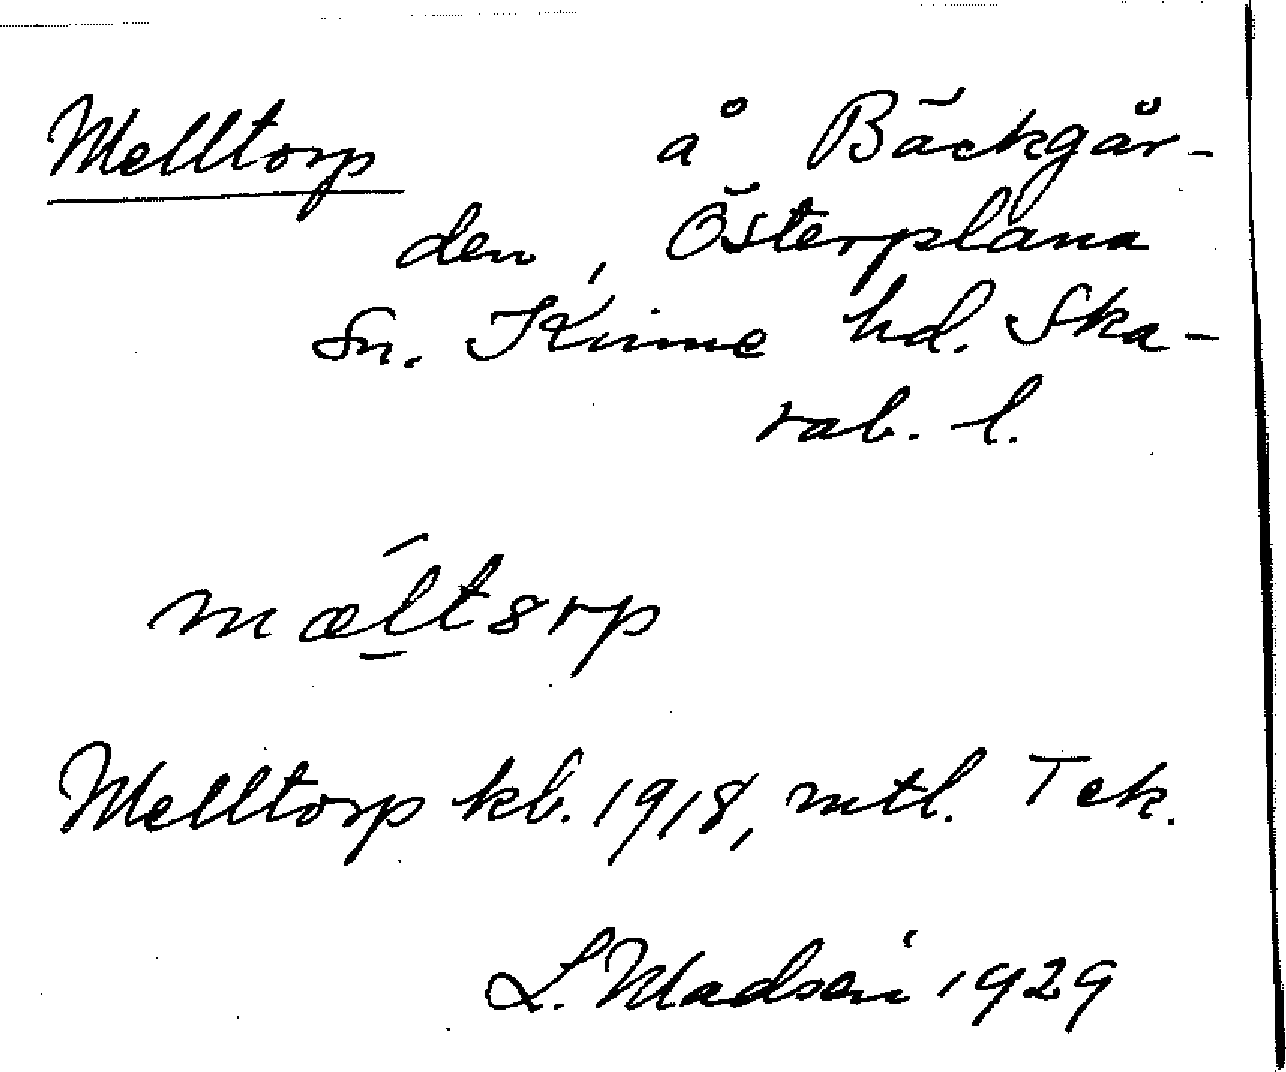 Melltorp å Bäckgår-
den, Österplana
Sn. Kinne hd. Ska-
rab. l.
mæ̀ltórp
Melltorp kb. 1918, mtl. Tek.
L. Madsén 1929